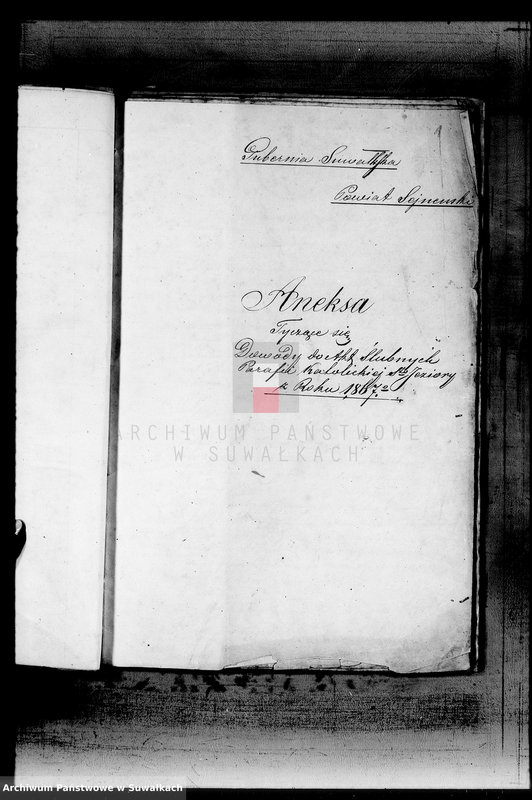 1
Gubernia Suwalska
Powiat Sejnenski
Aneksa
Tyczące się
Dowody do Akt Ślubnych
Parafii Katolickiej Jeziory
z Roku 1867.
ARCHIWUM PAŃSTWOWE
W SUWAŁKACH
Archiwum Państwowe w Suwałkach